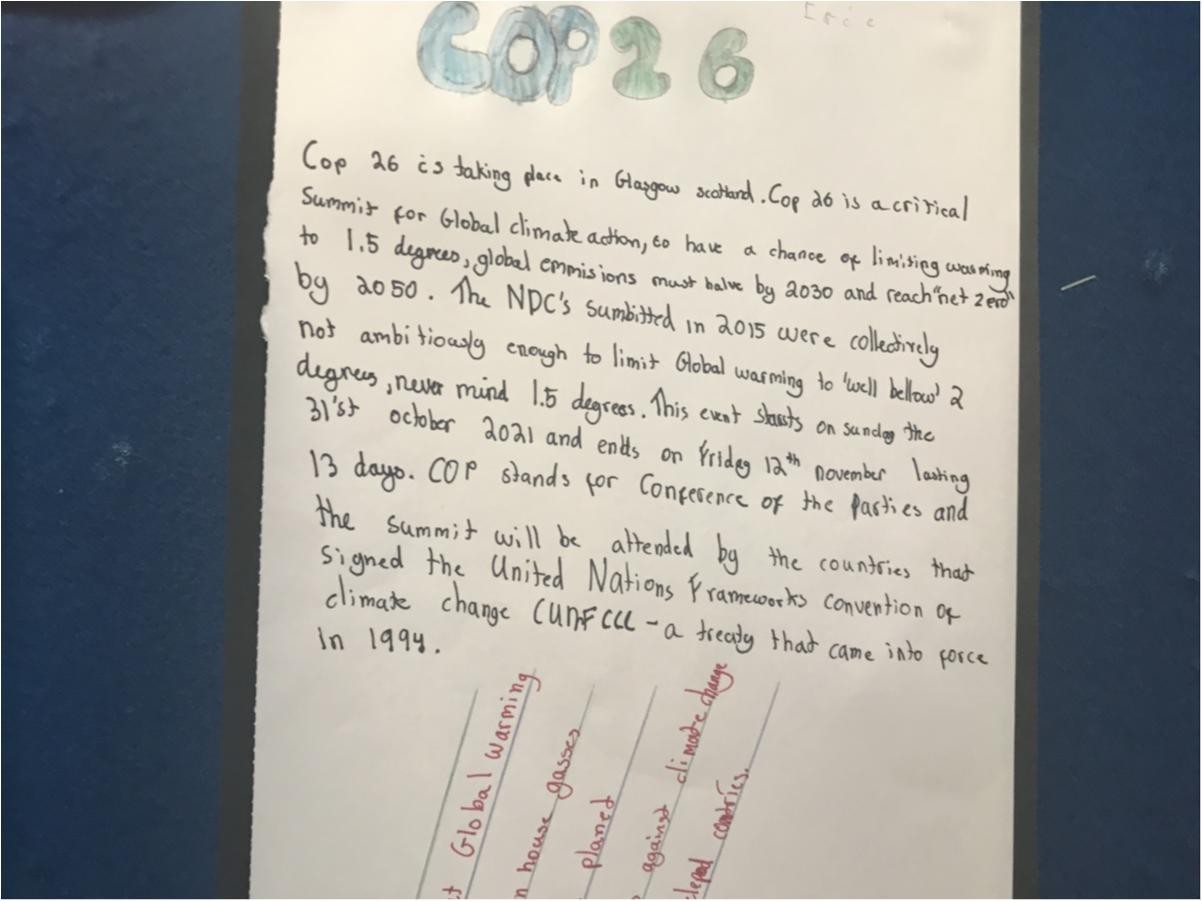 COP 26
Eric
Cop 26 is taking place in Glasgow scotland. Cop 26 is a critical
Summit for Global climate action, to have a chance of limiting warming
to 1.5 degrees, global emmisions must halve by 2030 and reach "net zero"
by 2050. The NDC's sumbitted in 2015 were collectively
not ambitiously enough to limit Global warming to 'well bellow' 2
degrees, never mind 1.5 degrees. This event starts on sunday the
31'st october 2021 and ends on Friday 12th november lasting
13 days. COP stands for Conference of the Parties and
the summit will be attended by the countries that
signed the United Nations Frameworks convention of
climate change (UNFCCC - a treaty that came into force
in 1994.
Global warming
house gasses
planed
against climate change
contries.